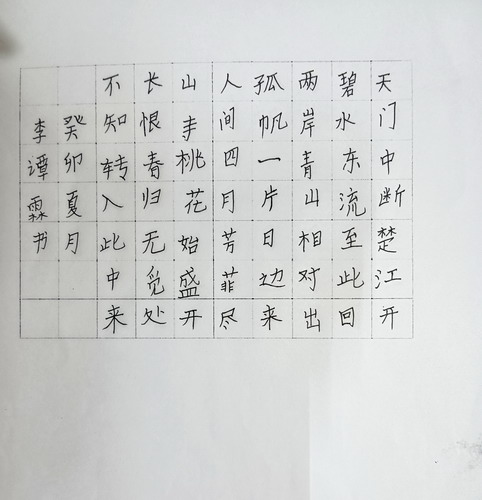 天门中断楚江开
碧水东流至此回
两岸青山相对出
孤帆一片日边来
人间四月芳菲尽
山寺桃花始盛开
长恨春归无觅处
不知转入此中来
癸卯夏月
李谭霖书